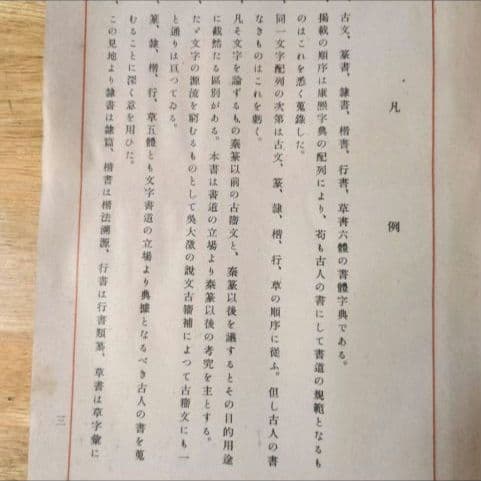 凡例
古文、篆書、隷書、楷書、行書、草書六體の書體字典である。
揭載の順序は康熙字典の配列により、苟も古人の書にして書道の規範となるも
のはこれを悉く蒐錄した。
同一文字配列の次第は古文、篆、隷、楷、行、草の順序に從ふ。但し古人の書
なきものはこれを剩く。
凡そ文字を論ずるもの秦篆以前の古籀文と、秦篆以後を議するとその目的用途
に截然たる區別がある。本書は書道の立場より秦篆以後の考究を主とする。
たゞ文字の源流を窮むるものとして吳大澂の說文古籀補によつて古籀文にも一
と通りは亘つてゐる。
篆、隷、楷、行、草五體とも文字書道の立場より典據となるべき古人の書を蒐
むることに深く意を用ひた。
この見地より隷書は隷篇、楷書は楷法溯源、行書は行書類纂、草書は草字彙に
三